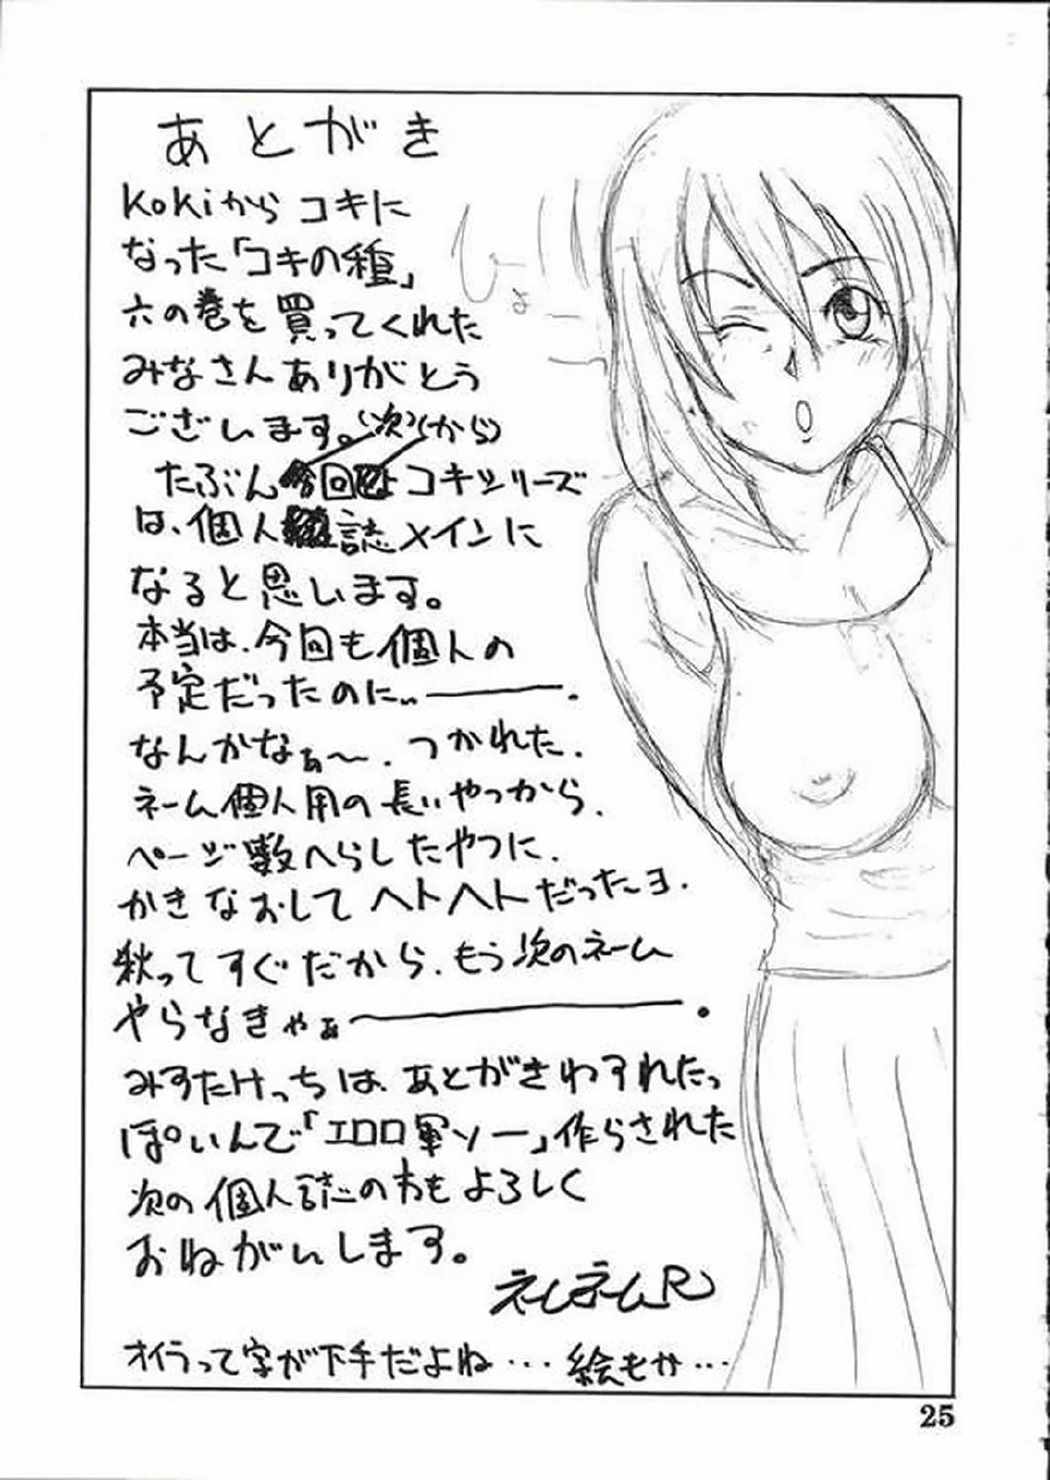 あとがき
kokiからコキに
なった「コキの種」
六の巻を買ってくれた
みなさんありがとう
ございます。(次)(から)
たぶん今回は コキシリーズ
は、個人誌メインに
なると思います。
本当は、今回も個人の
予定だったのに…ーーー.
なんかなぁ〜. つかれた.
ネーム個人用の長いやつから、
ページ数へらしたやつに、
かきなおしてヘトヘトだった〜ヨ.
秋ってすぐだから、もう次のネーム
やらなきゃぁーーーーー.
みすたけっちは、あとがきわすれたっ
ぽいんで「エロロ軍ソー」作らされた
次の個人誌のわもよろしく
おねがいします。
ネムネムR
オイラって字が下手だよね… 絵もか…
25